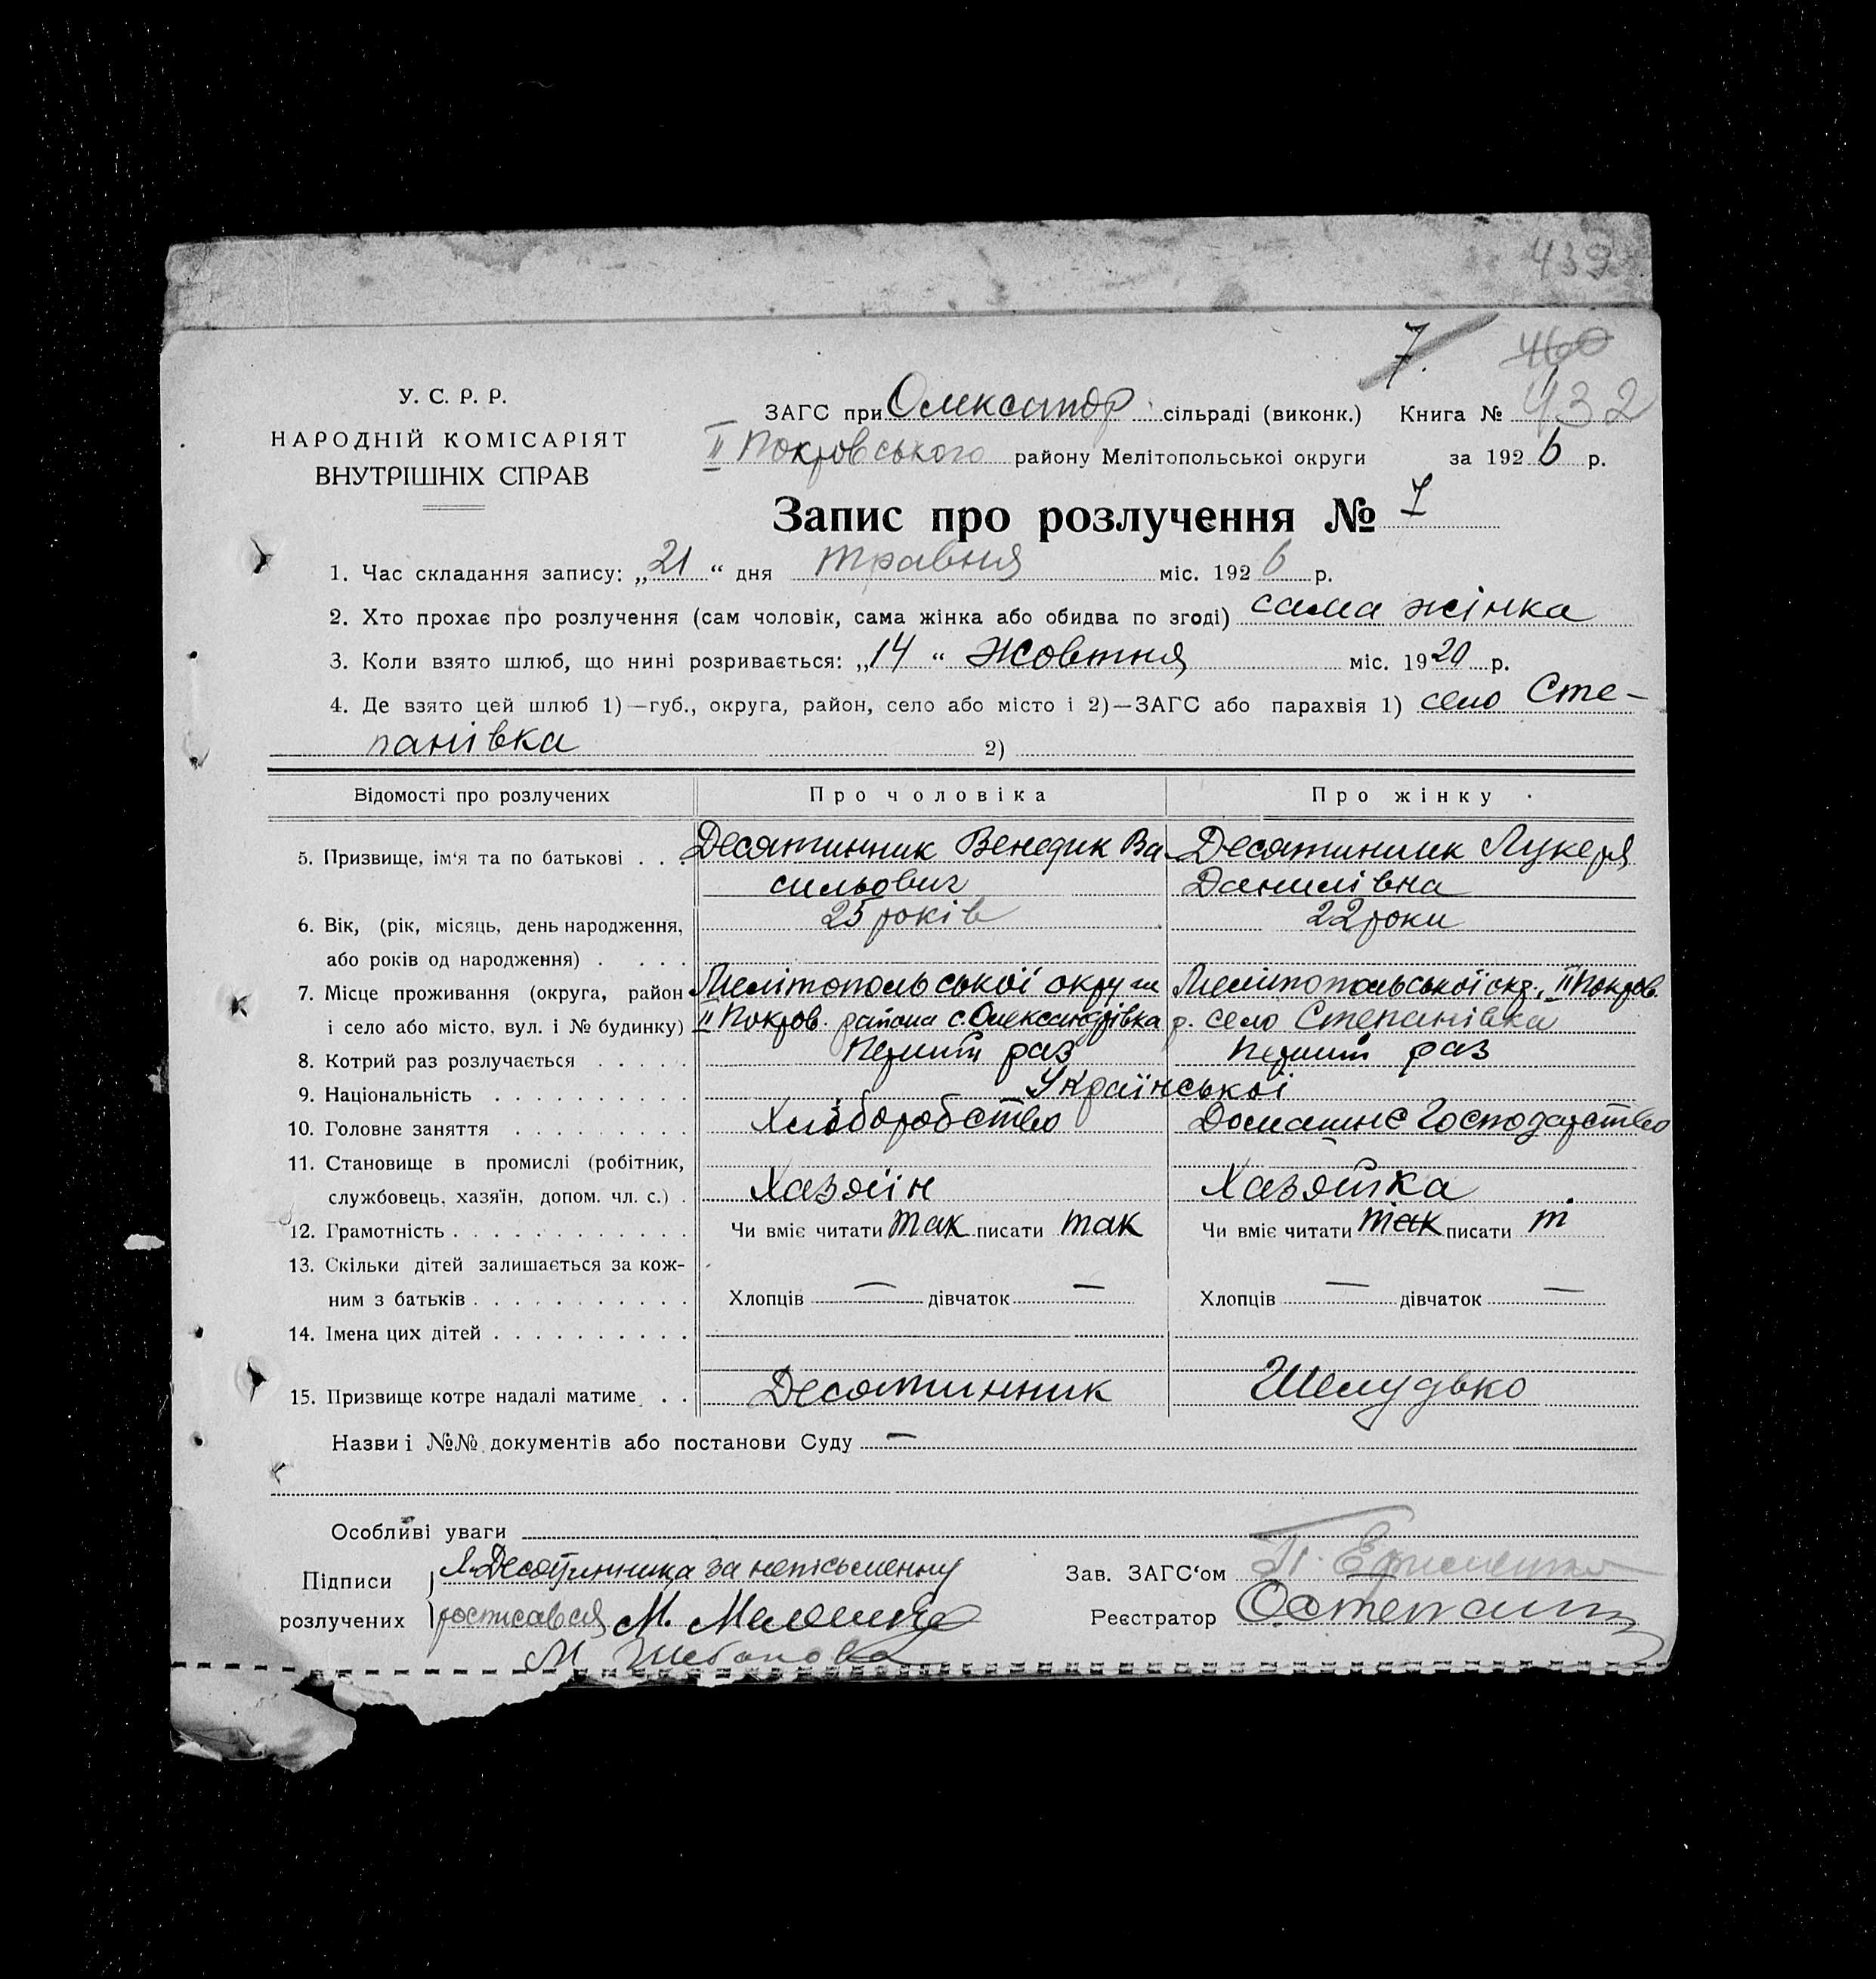 439
7.
460
У. С. Р. Р.
НАРОДНІЙ КОМІСАРІЯТ
ВНУТРІШНІХ СПРАВ
ЗАГС при Олександр. сільраді (виконк.) Книга № 432
ІІ Покровського району Мелітопольскої округи за 1926 р.
Запис про розлучення № 7
1. Час складання запису: „21“ дня травня міс. 1926 р.
2. Хто прохає про розлучення (сам чоловік, сама жінка або обидва по згоді) сама жінка
3. Коли взято шлюб, що нині розривається: „14“ Жовтня міс. 1920 р.
4. Де взято цей шлюб 1)—губ., округа, район, село або місто і 2)—ЗАГС або парахвія 1) село Сте-
панівка 2)
Відомості про розлучених Про чоловіка Про жінку
5. Призвище, ім'я та по батькові . . Десятинник Венедик Ва- Десятинник Лукеря
сильович Данилівна
6. Вік, (рік, місяць, день народження, 25 років 22 роки
або років од народження) . . . .
7. Місце проживання (округа, район Мелітопольської округи Мелітопольської окр., ІІ Покров.
і село або місто, вул. і № будинку) ІІ Покров. района с. Олександрівка р. село Степанівка
8. Котрий раз розлучається . . . . . Перший раз Перший раз
9. Національність . . . . . . . . . . Української
10. Головне заняття . . . . . . . . . Хліборобство Домашнє Господарство
11. Становище в промислі (робітник,
службовець, хазяїн, допом. чл. с.) . Хазяін Хазяйка
12. Грамотність . . . . . . . . . . . . Чи вміє читати так писати так Чи вміє читати так писати т
13. Скільки дітей залишається за кож-
ним з батьків . . . . . . . . . . . Хлопців — дівчаток — Хлопців — дівчаток —
14. Імена цих дітей . . . . . . . . . .
15. Призвище котре надалі матиме . . Десятинник Шелудько
Назви і №№ документів або постанови Суду —
Особливі уваги
Підписи за непісьменну Зав. ЗАГС'ом П.
розлучених росписався М. Реєстратор
М.